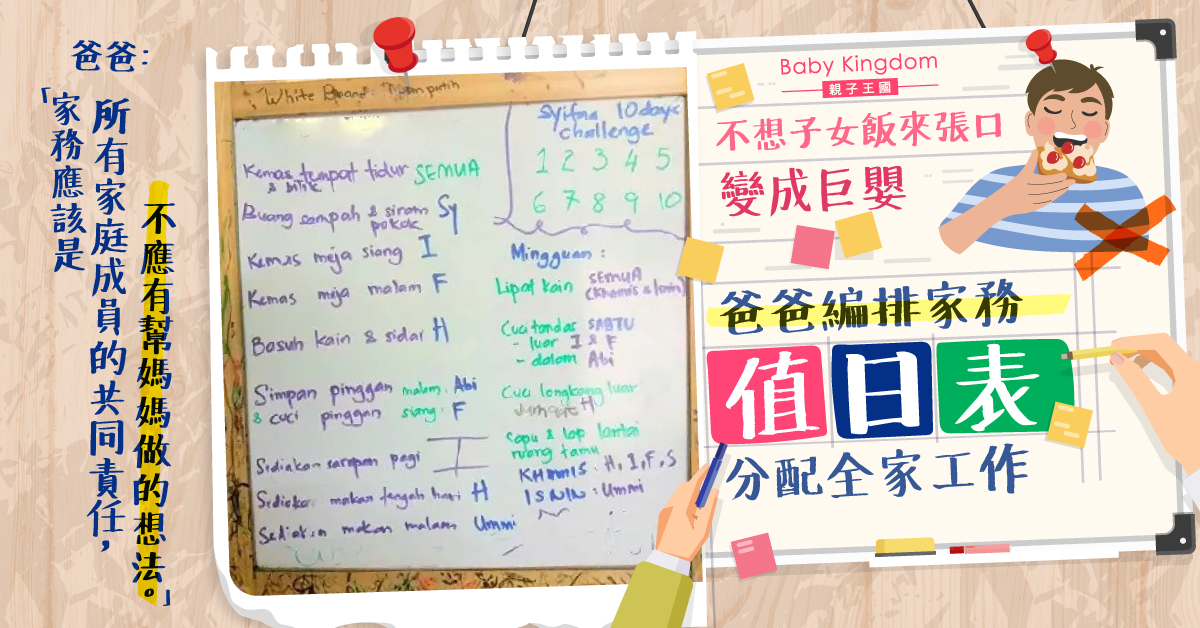 爸爸:
「家務應該是
所有家庭成員的共同責任，
不應有幫媽媽做的想法。」
White Board: Tippan putih
Kemas tempat tidur SEMUA
& bilik
Buang sampah & siram Sy
pokok
Kemas meja siang I
Kemas meja malam F
Basuh kain & sidai H
Simpan pinggan malam: Abi
& cuci pinggan siang: F
Sediakan sarapan pagi I
Sediakan makan tengah hari H
Sediakan makan malam Ummi
Syifaa 10 days
challenge
1 2 3 4 5
6 7 8 9 10
Mingguan:
Lipat kain SEMUA
(Khamis & Isnin)
Cuci tandas SABTU
- luar I & F
- dalam Abi
Cuci longkang luar
Jumaat H
Sapu & lap lantai
ruang tamu
KHAMIS: H, I, F, S
ISNIN: Ummi
Baby Kingdom
親子王國
不想子女飯來張口
變成巨嬰
爸爸編排家務
值日表
分配全家工作